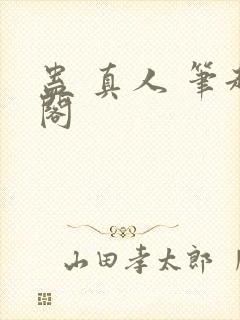 蛊真人 筆
閣
山田孝太郎